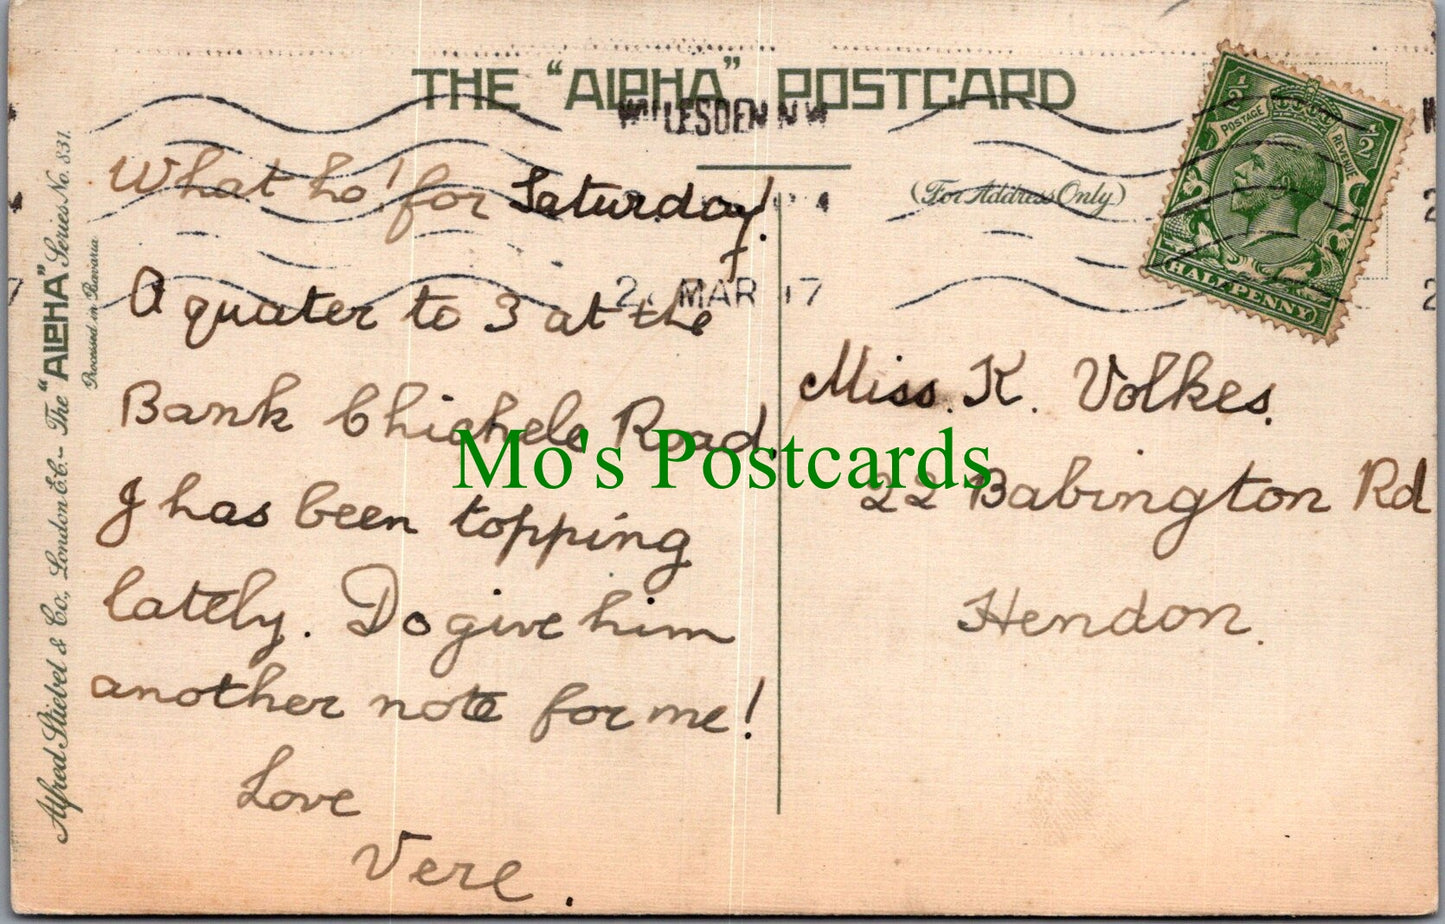 THE "ALPHA" POSTCARD
WILLESDEN NW
(For Address Only)
MAR 17
½ POSTAGE REVENUE ½
HALFPENNY
What ho! for Saturday!
A quater to 3 at the
Bank Chichele Road.
J has been topping
lately. Do give him
another note for me!
Love
Vere.
Miss. K. Volkes.
22 Babington Rd
Hendon.
Alfred Stiebel & Co., London E.C. - The "ALPHA" Series No. 831.
Processed in Bavaria
Mo's Postcards